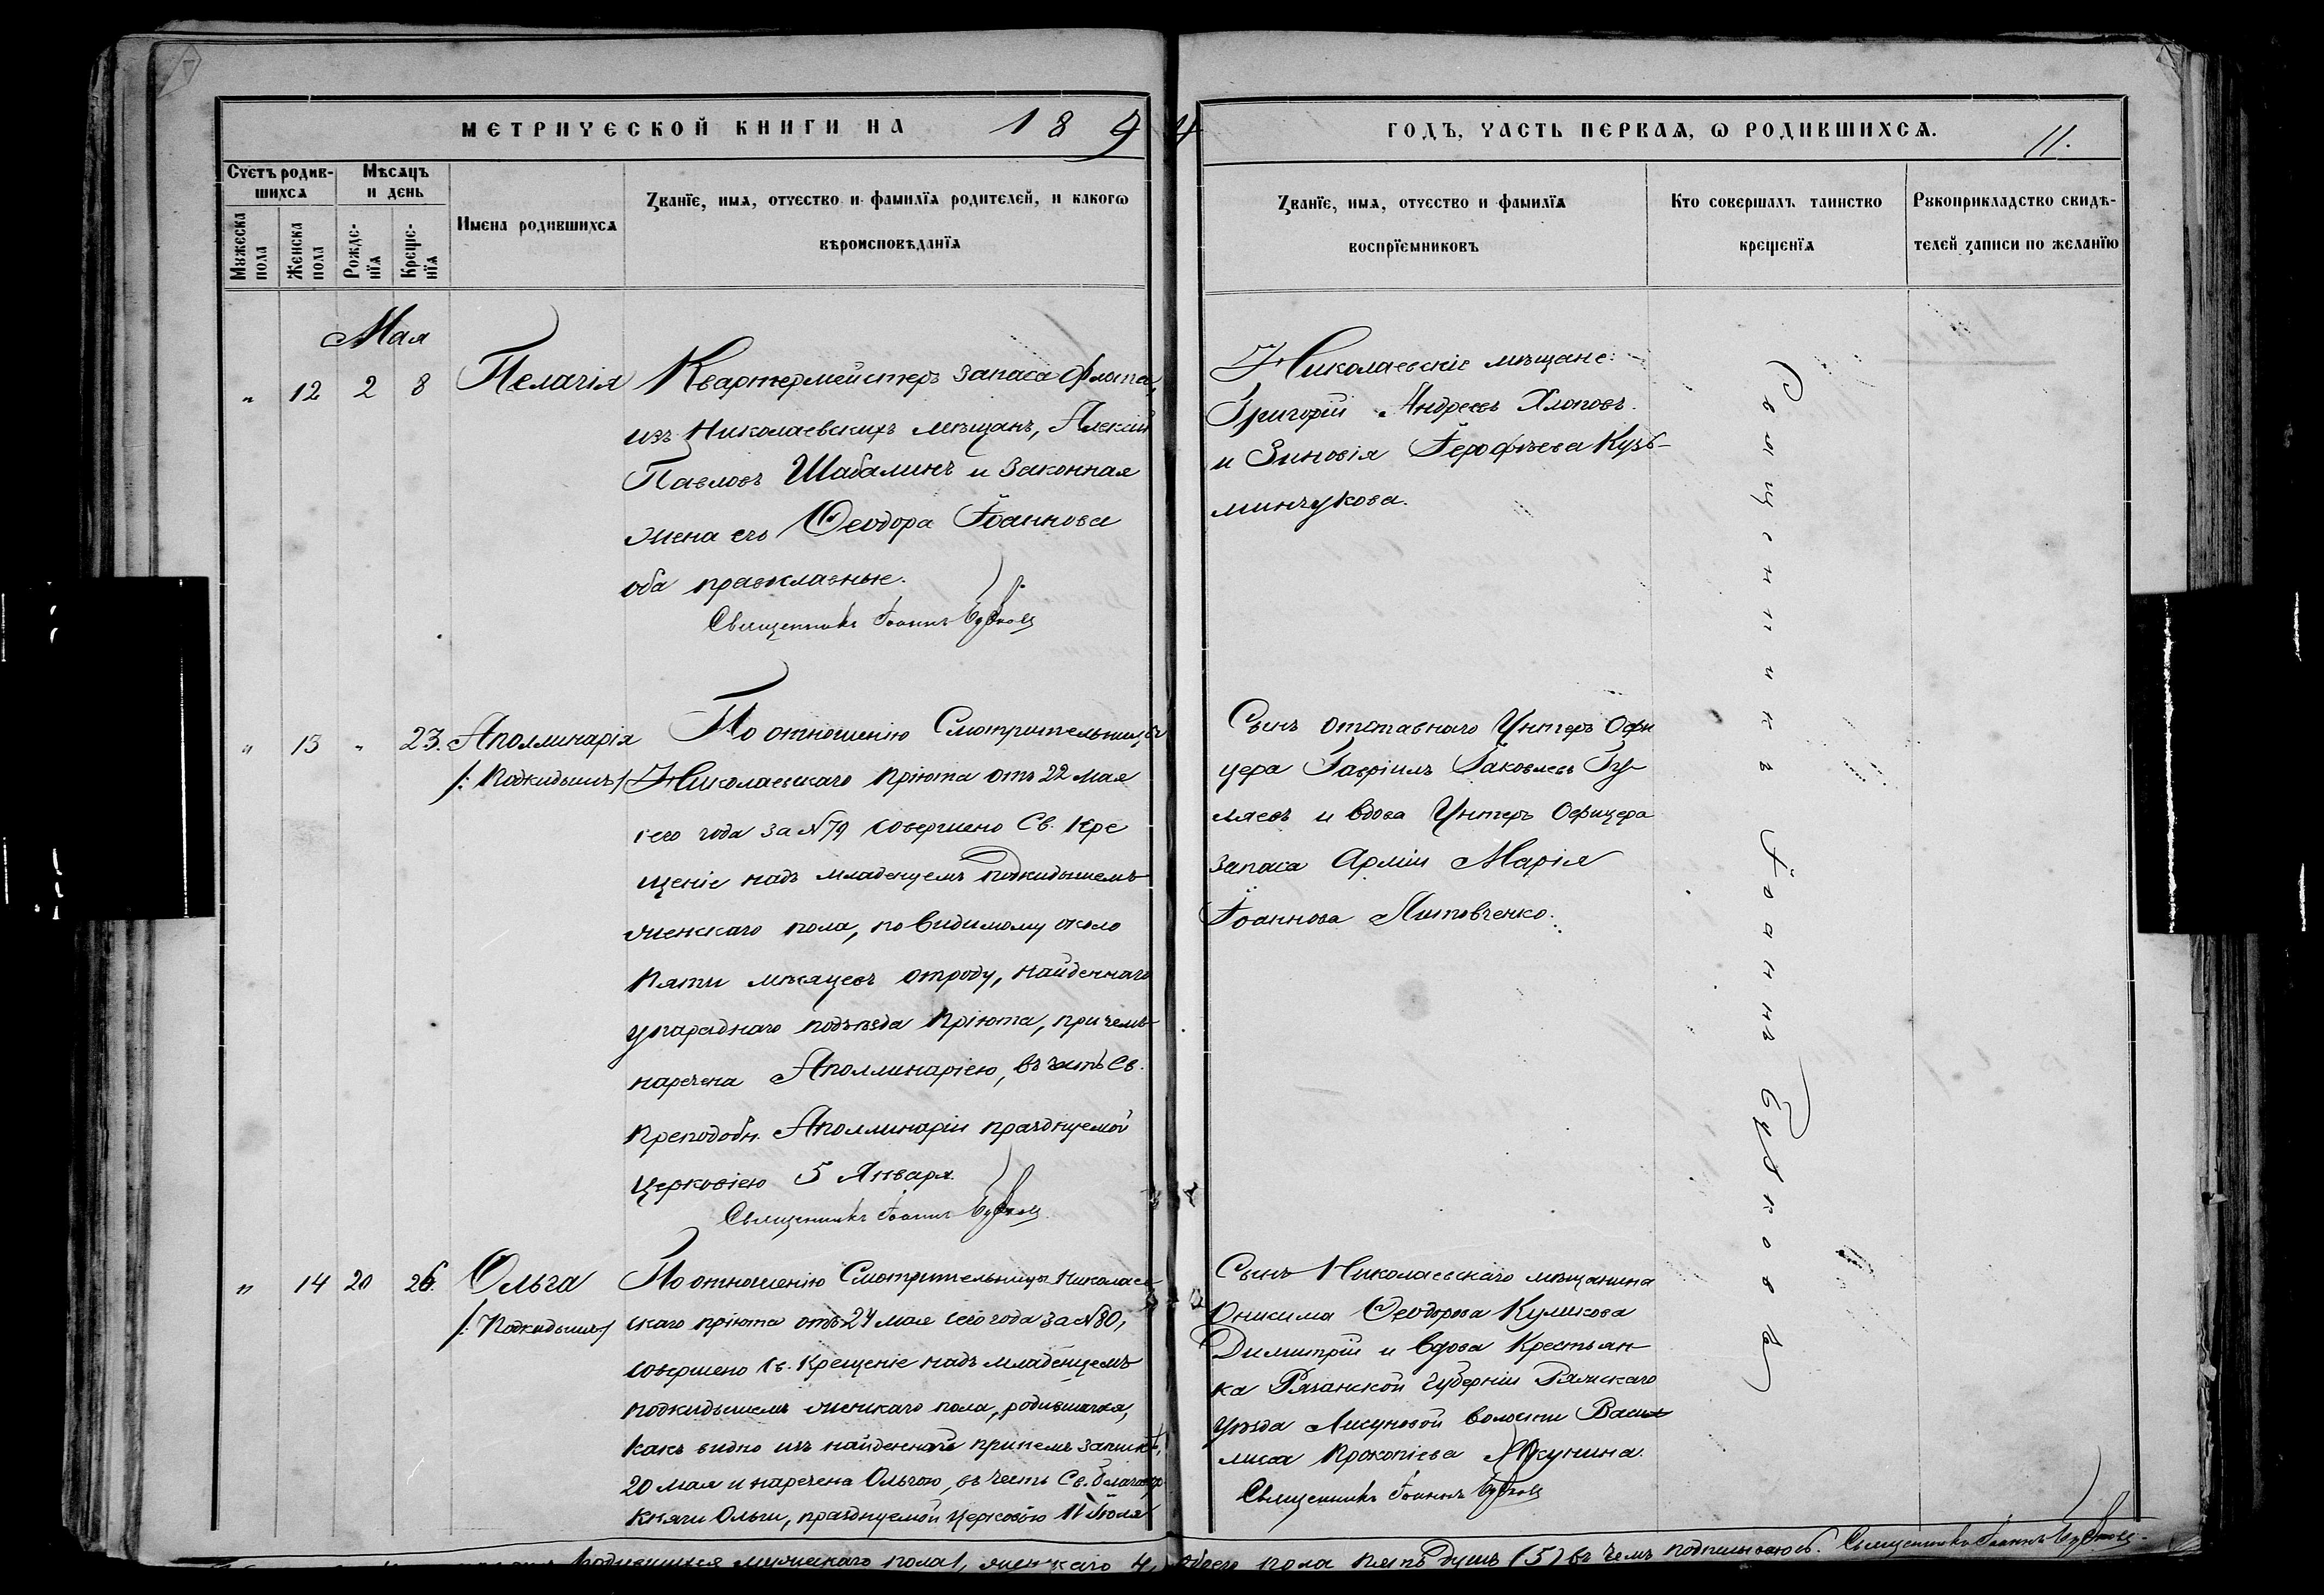 МЕТРИЧЕСКОЙ КНИГИ НА 1894
ГОДЪ, ЧАСТЬ ПЕРВАѦ, Ѡ РОДИВШИХСѦ.
11.
Счетъ родив-
шихсѧ
Мѣсѧцъ
и день
Мужеска
пола
Женска
пола
Рожде-
нїѧ
Креще-
нїѧ
Имена родившихсѧ
Званїе, имѧ, отчество и фамилїѧ родителей, и какогѡ
вѣроисповѣданїѧ
Званїе, имѧ, отчество и фамилїѧ
воспрїемниковъ
Кто совершалъ таинство
крещенїѧ
Рукоприкладство свидѣ-
телей записи по желанїю
Мая
" 12 2 8 Пелагія
Квартермейстеръ запаса флота,
изъ Николаевскихъ мѣщанъ, Алексій
Павловъ Шабалинъ и законная
жена его Ѳеодора Іоаннова
оба православные.
Священникъ Іоаннъ
Николаевскіе мѣщане:
Григорій Андреевъ Хлоповъ
и Зиновія Іерофѣева Кузь-
минчукова.
Священникъ Іоаннъ
" 13 " 23. Аполлинарія
/: Подкидышъ /
По отношенію Смотрительницы
Николаевскаго пріюта отъ 22 мая
сего года за №79 совершено Св. Кре
щеніе надъ младенцемъ подкидышемъ
женскаго пола, по видимому около
пяти мѣсяцевъ отроду, найденнаго
у параднаго подъѣзда пріюта, причемъ
наречена Аполлинаріею, въ честь Св.
Преподобн. Аполлинаріи празднуемой
церковію 5 Января.
Священникъ Іоаннъ
Сынъ отставнаго Унтеръ Офи
цера Гавріилъ Іаковлевъ Гу-
ляевъ и вдова Унтеръ Офицера
запаса Арміи Марія
Іоаннова Литовченко.
" 14 20 26. Ольга
/: Подкидышъ /
По отношенію Смотрительницы Николаев
скаго пріюта отъ 24 мая сего года за №80,
совершено Св. Крещеніе надъ младенцемъ
подкидышемъ женскаго пола, родившагося,
какъ видно изъ найденной при немъ записки,
20 мая и наречена Ольгою, въ честь Св.
Княгини Ольги, празднуемой церковію 11 Іюля
Сынъ Николаевскаго мѣщанина
Онисима Ѳеодорова Куликова
Димитрій и вдова Крестьян-
ка Рязанской Губерніи Ряжскаго
уѣзда волости Васи
лиса Прокопіева
Священникъ Іоаннъ
родившихся мужескаго пола 1, женскаго 4, обоего пола пять душъ (5) въ чемъ подписываюсь. Священникъ Іоаннъ